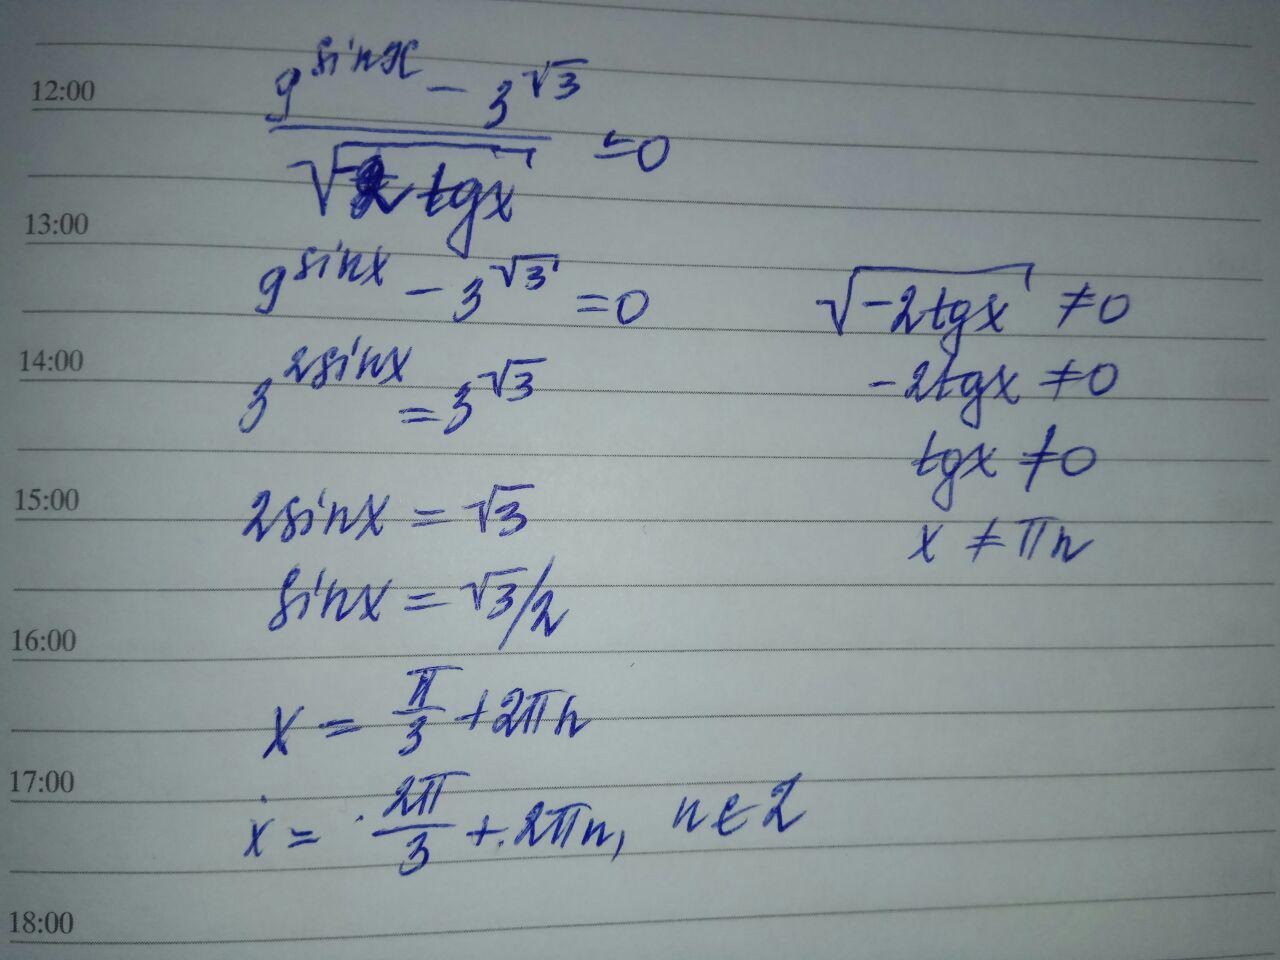 12:00
9^sinx - 3^√3
―――――― = 0
√ tgx
13:00
9^sinx - 3^√3 = 0
√-2tgx ≠ 0
14:00
3^2sinx = 3^√3
-2tgx ≠ 0
tgx ≠ 0
15:00
2sinx = √3
x ≠ πn
sinx = √3/2
16:00
x = π/3 + 2πn
17:00
x = 2π/3 + 2πn, n ∈ Z
18:00